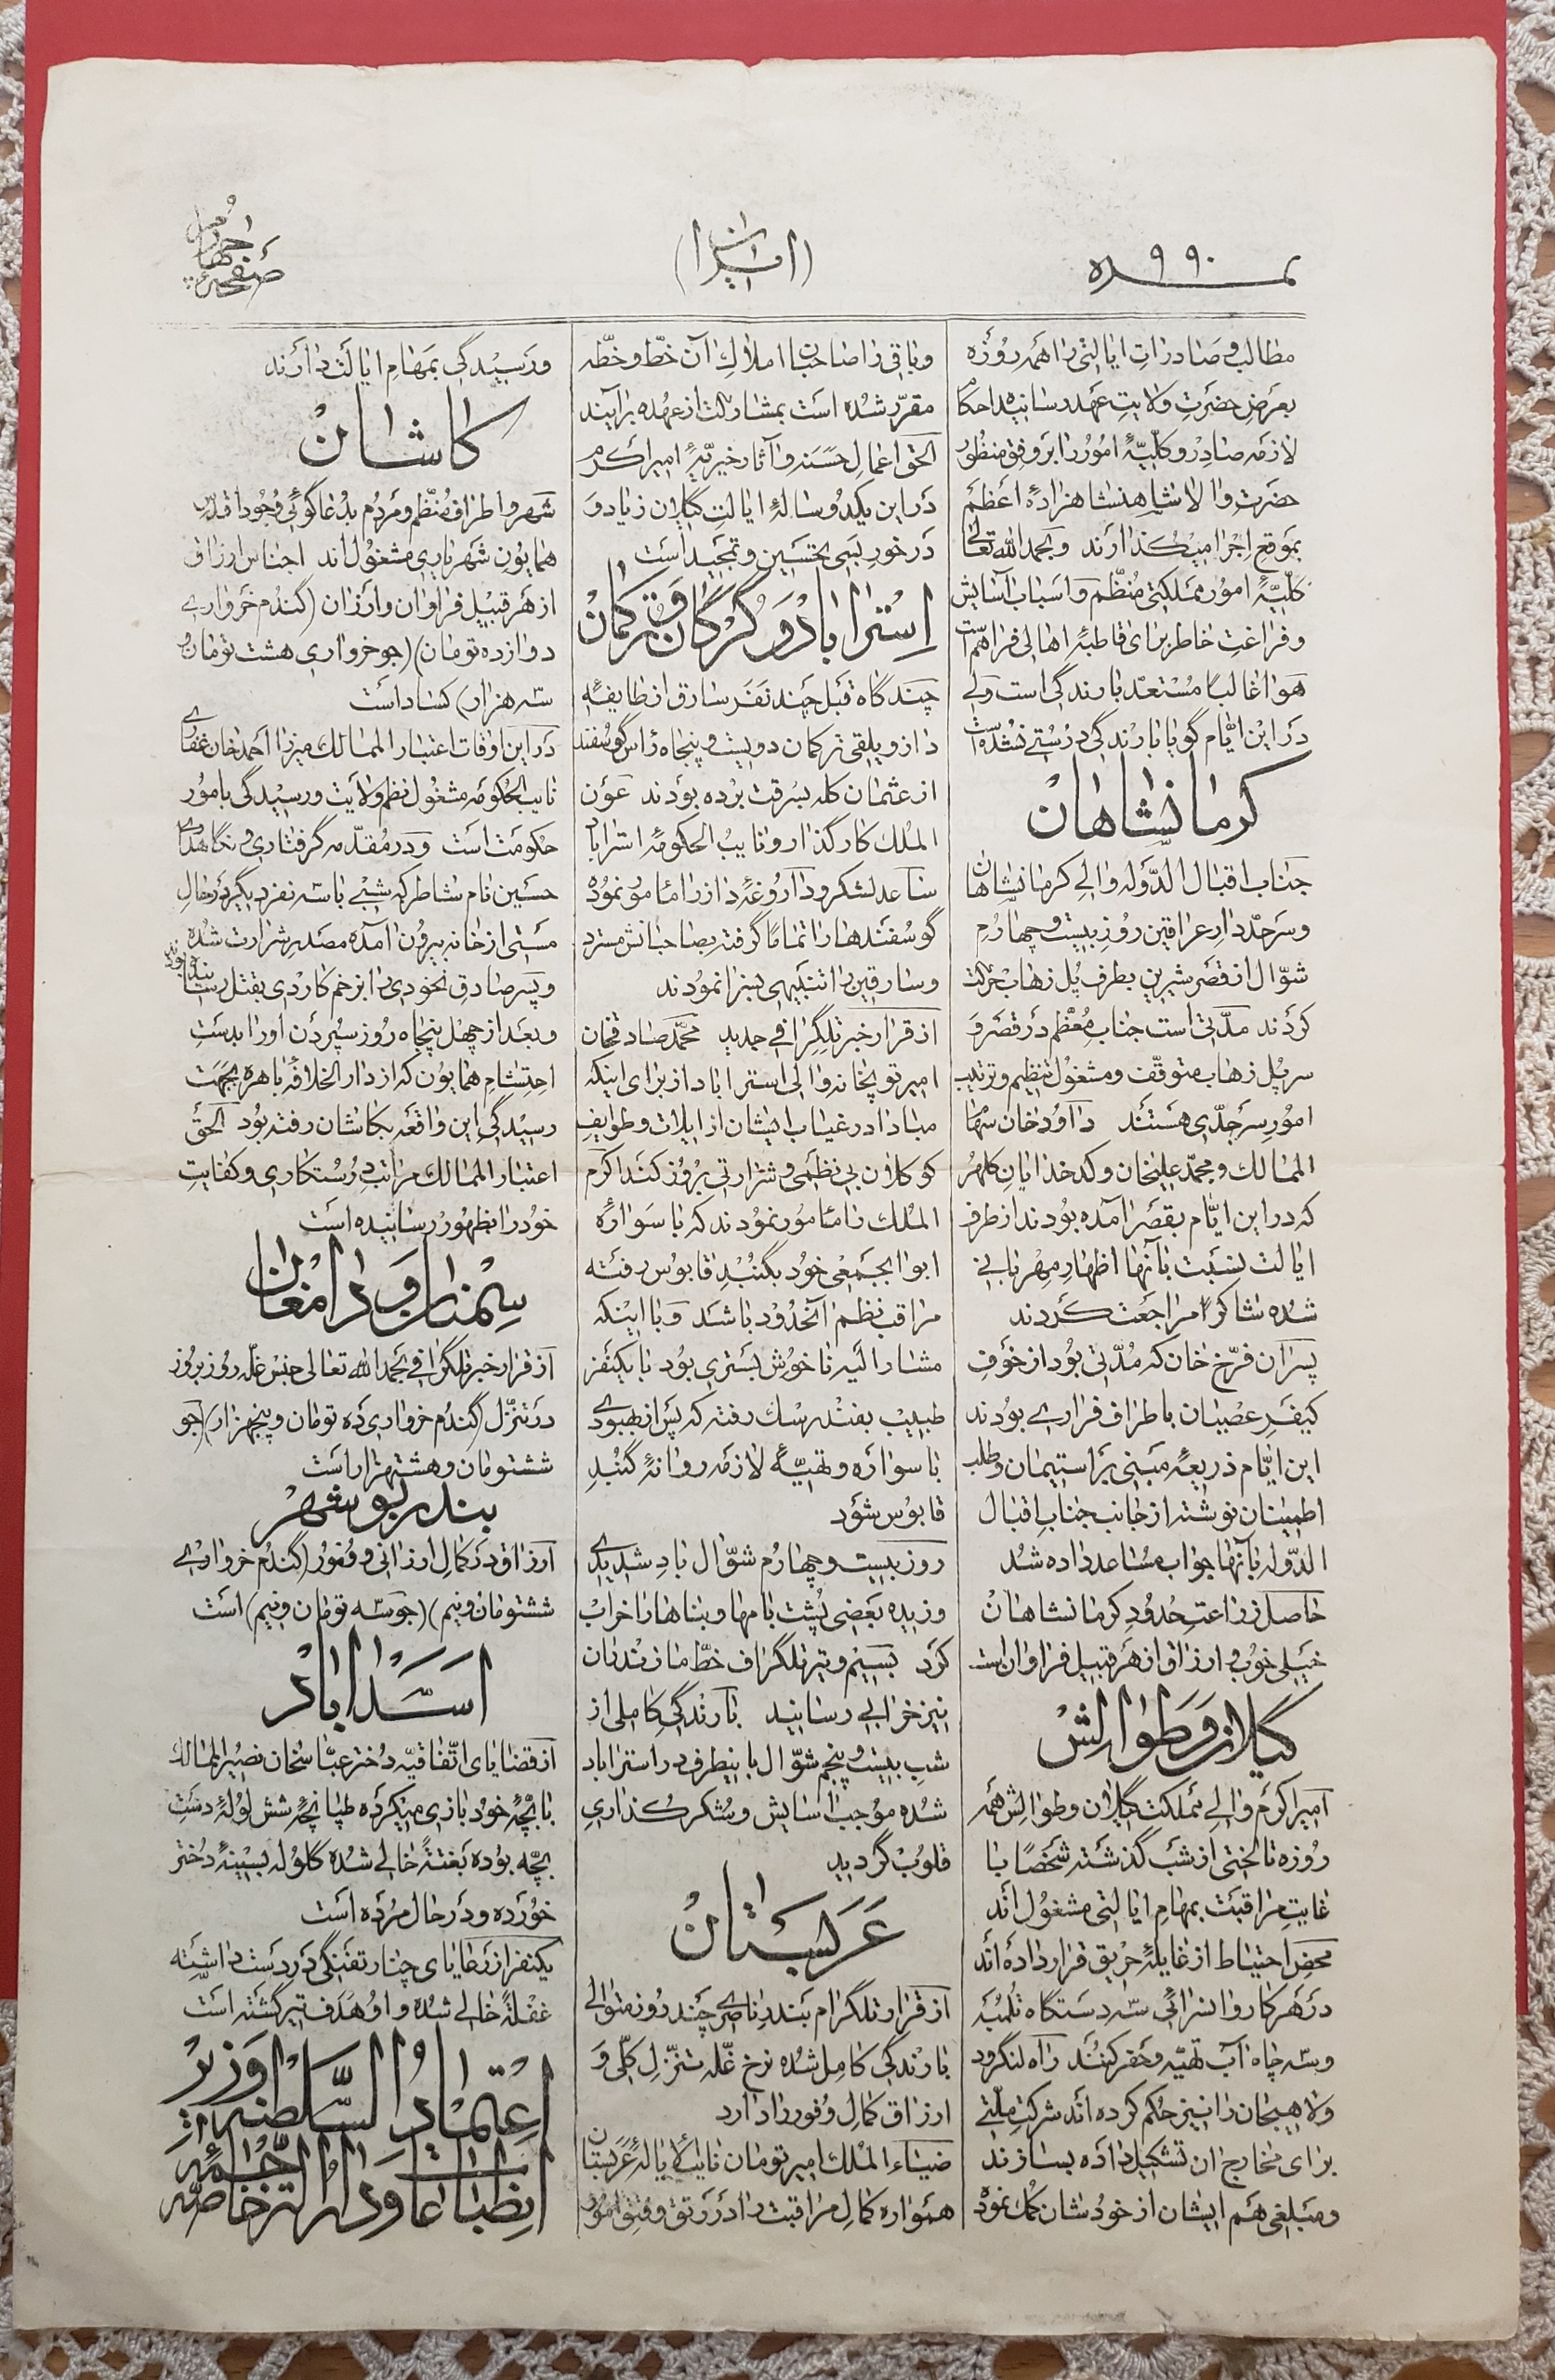 نمره ۹۹۰
(ایران)
صفحهٔ چهارم
مطالب و صادرات ایالتی را همه روزه
بعرض حضرت ولایت عهد رسانیده احکام
لازمه صادر و کلیّهٔ امور را بر وفق منظور
حضرت والا شاهنشاهزادهٔ اعظم
بموقع اجرا میگذارند و بحمد الله تعالی
کلیّهٔ امور مملکتی منظّم و اسباب آسایش
و فراغت خاطر برای قاطبهٔ اهالی فراهم است
هوا غالباً مستعد بارندگی است ولی
در این ایّام گویا بارندگی درستی نشده است
کرمانشاهان
جناب اقبال الدّوله والی کرمانشاهان
و سرحدّدار عراقین روز بیست و چهارم
شوّال از قصر شیرین بطرف پل زهاب حرکت
کردند مدّتی است جناب معظم در قصر و
سرپل زهاب متوقّف و مشغول تنظیم و ترتیب
امور سرحدّی هستند داود خان سهام
الممالک و محمّد علیخان و کدخدایان کلهر
که در این ایّام بقصر آمده بودند از طرف
ایالت نسبت بآنها اظهار مهربانی
شده شاکراً مراجعت کردند
پسران فرّخ خان که مدّتی بود از خوف
کیفر عصیان باطراف فراری بودند
این ایّام ذریعهٔ مبنی بر استیمان و طلب
اطمینان نوشته از جانب جناب اقبال
الدّوله بآنها جواب مساعد داده شد
حاصل زراعت حدود کرمانشاهان
خیلی خوب و ارزاق از هر قبیل فراوان است
گیلان و طوالش
امیر اکرم والی مملکت گیلان و طوالش همه
روزه تا لختی از شب گذشته شخصاً با
غایت مراقبت بمهام ایالتی مشغول‌اند
محض احتیاط از غایلهٔ حریق قرار داده‌اند
در هر کاروانسرائی سه دستگاه تلمبه
و سه چاه آب تهیّه و حفر کنند راه لنگرود
و لاهیجان را نیز حکم کرده‌اند شرکت ملّتی
برای مخارج آن تشکیل داده بسازند
و مبلغی هم ایشان از خودشان کمک نموده
و باقی را صاحبان املاک آن خطّ و خطّه
مقرّر شده است بمشارکت از عهده برآیند
الحق اعمال حسنه و آثار خیریّهٔ امیر اکرم
در این یکدو سالهٔ ایالت گیلان زیاد و
در خور بسی تحسین و تمجید است
استراباد و گرگان و ترکمان
چند گاه قبل چند نفر سارق از طایفهٔ
داز و یلقی ترکمان دویست و پنجاه رأس گوسفند
از عثمان کله بسرقت برده بودند عون
الملک کارگذار و نایب الحکومهٔ استراباد
ساعد لشکر و داروغهٔ داز را مامور نموده
گوسفندها را تماماً گرفته بصاحبانش مسترد
و سارقین را تنبیهی بسزا نمودند
از قرار خبر تلگرافی جدید محمّد صادق خان
امیر توپخانه والی استراباد از برای اینکه
مبادا در غیاب ایشان از ایلات و طوایف
کوکلان بی نظمی و شرارتی بروز کند اکرم
الملک را مامور نمودند که با سوارهٔ
ابوابجمعی خود بگنبد قابوس رفته
مراقب نظم آنحدود باشد و با اینکه
مشار الیه ناخوش بستری بود با یکنفر
طبیب بفندرسک رفته که پس از بهبودی
با سواره و تهیّهٔ لازمه روانهٔ گنبد
قابوس شود
روز بیست و چهارم شوّال باد شدیدی
وزیده بعضی پشت بامها و بناها را خراب
کرد بسیم و تیر تلگراف خطّ مازندران
نیز خرابی رسانید بارندگی کاملی از
شب بیست و پنجم شوّال باینطرف در استراباد
شده موجب آسایش و شکرگذاری
قلوب گردید
عربستان
از قرار تلگرام بندر ناصری چند روز متوالی
بارندگی کامل شده نرخ غلّه تنزّل کلّی و
ارزاق کمال وفور را دارد
ضیاء الملک امیر تومان نایب الایالهٔ عربستان
همواره کمال مراقبت را در رتق و فتق امور
و رسیدگی بمهام ایالت دارند
کاشان
شهر و اطراف منظّم و مردم بدعاگوئی وجود اقدس
همایون شهریاری مشغول‌اند اجناس ارزاق
از هر قبیل فراوان و ارزان (گندم خرواری
دوازده تومان) (جو خرواری هشت تومان و
سه هزار) کساد است
در این اوقات اعتبار الممالک میرزا احمد خان غفاری
نایب الحکومه مشغول نظم ولایت و رسیدگی بامور
حکومت است و در مقدّمه گرفتاری و نگاهداری
حسین نام شاطر که شبی با سه نفر دیگر در حال
مستی از خانه بیرون آمده مصدر شرارت شده
و پسر صادق نخودی را بزخم کاردی بقتل رسانیده بود
و بعد از چهل پنجاه روز سپردن او را بدست
احتشام همایون که از دار الخلافهٔ باهره بجهت
رسیدگی این واقعه بکاشان رفته بود الحق
اعتبار الممالک مراتب درستکاری و کفایت
خود را بظهور رسانیده است
سمنان و دامغان
از قرار خبر تلگرافی بحمد الله تعالی جنس غلّه روز بروز
در تنزّل (گندم خرواری ده تومان و پنجهزار) (جو
ششتومان و هشتهزار است
بندر بوشهر
ارزاق در کمال ارزانی و وفور (گندم خرواری
ششتومان و نیم) (جو سه تومان و نیم) است
اسدآباد
از قضایای اتّفاقیّه دختر عبّاسخان نصیر الممالک
با بچّهٔ خود بازی میکرده طپانچهٔ شش لولهٔ دست
بچّه بوده بغتةً خالی شده گلوله بسینهٔ دختر
خورده و در حال مرده است
یکنفر از رعایای چنار تفنگی در دست داشته
غفلةً خالی شده و او هدف تیر گشته است
اعتماد السّلطنه وزیر
انطباعات و دار الترجمهٔ خاصّه